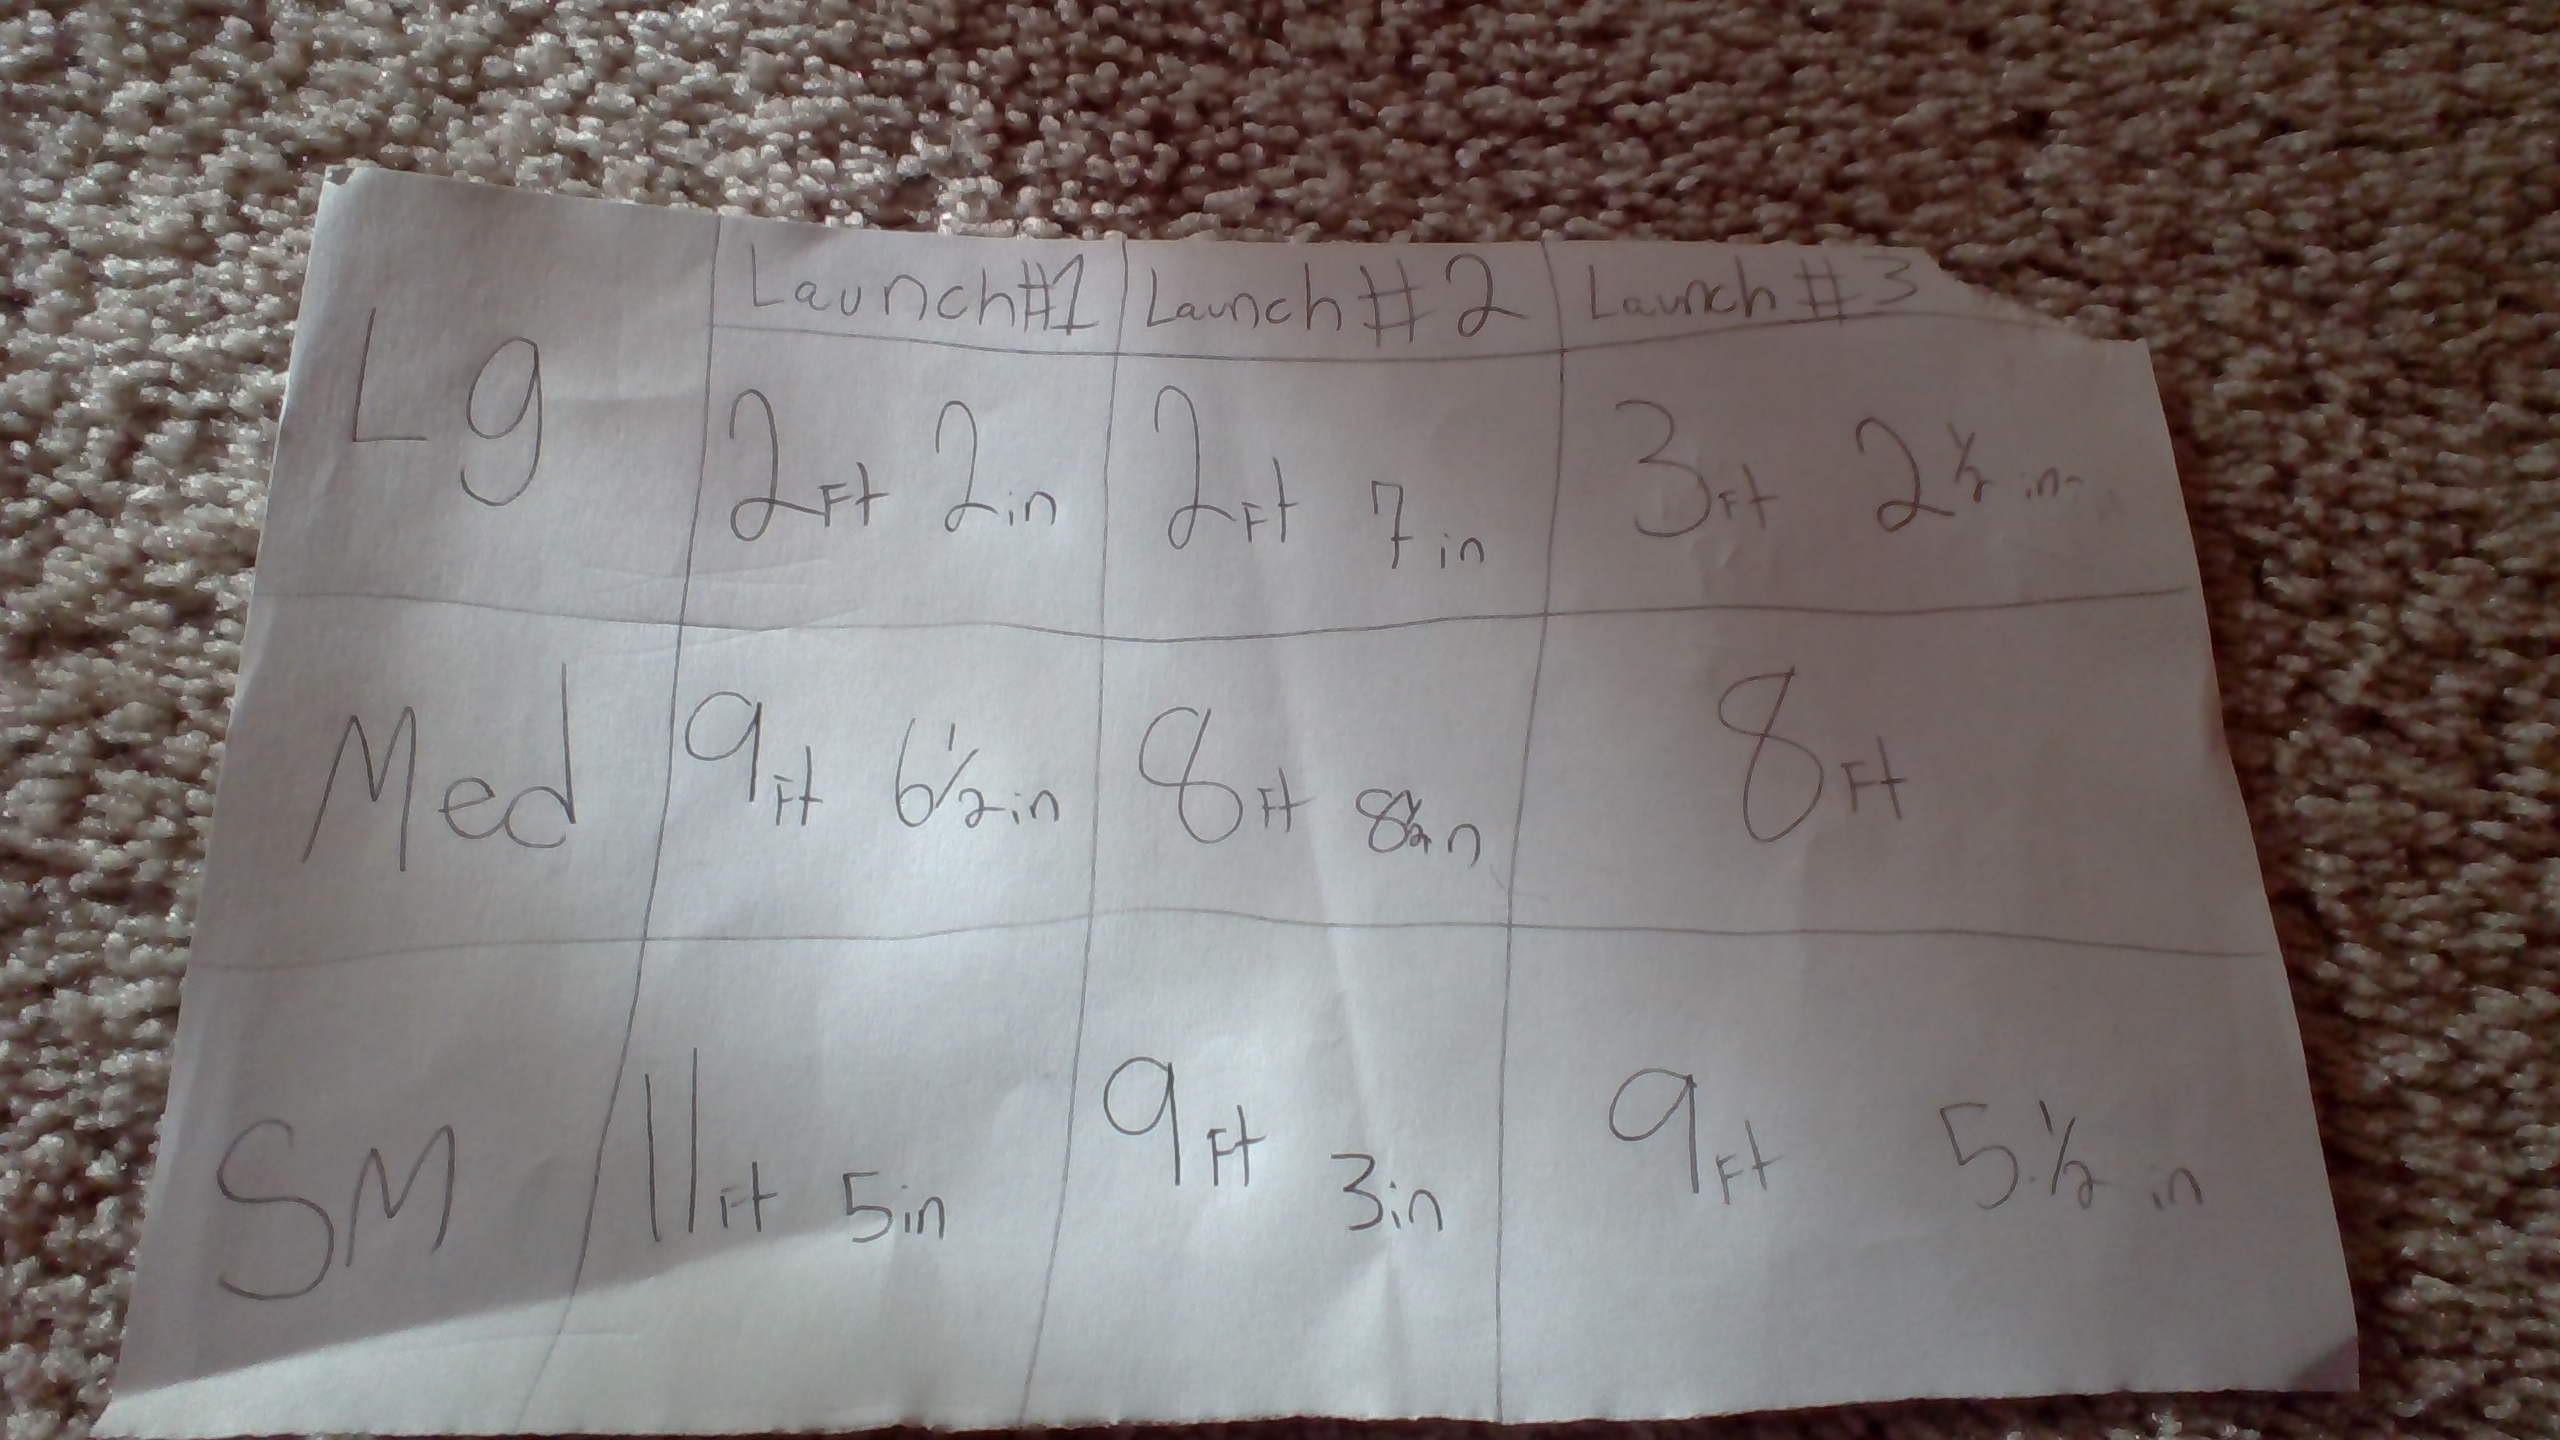 Launch #1 Launch #2 Launch #3
Lg 2 Ft 2 in 2 Ft 7 in 3 Ft 2 1/2 in
Med 9 Ft 6 1/2 in 8 Ft 8 1/2 in 8 Ft
SM 11 Ft 5 in 9 Ft 3 in 9 Ft 5 1/2 in